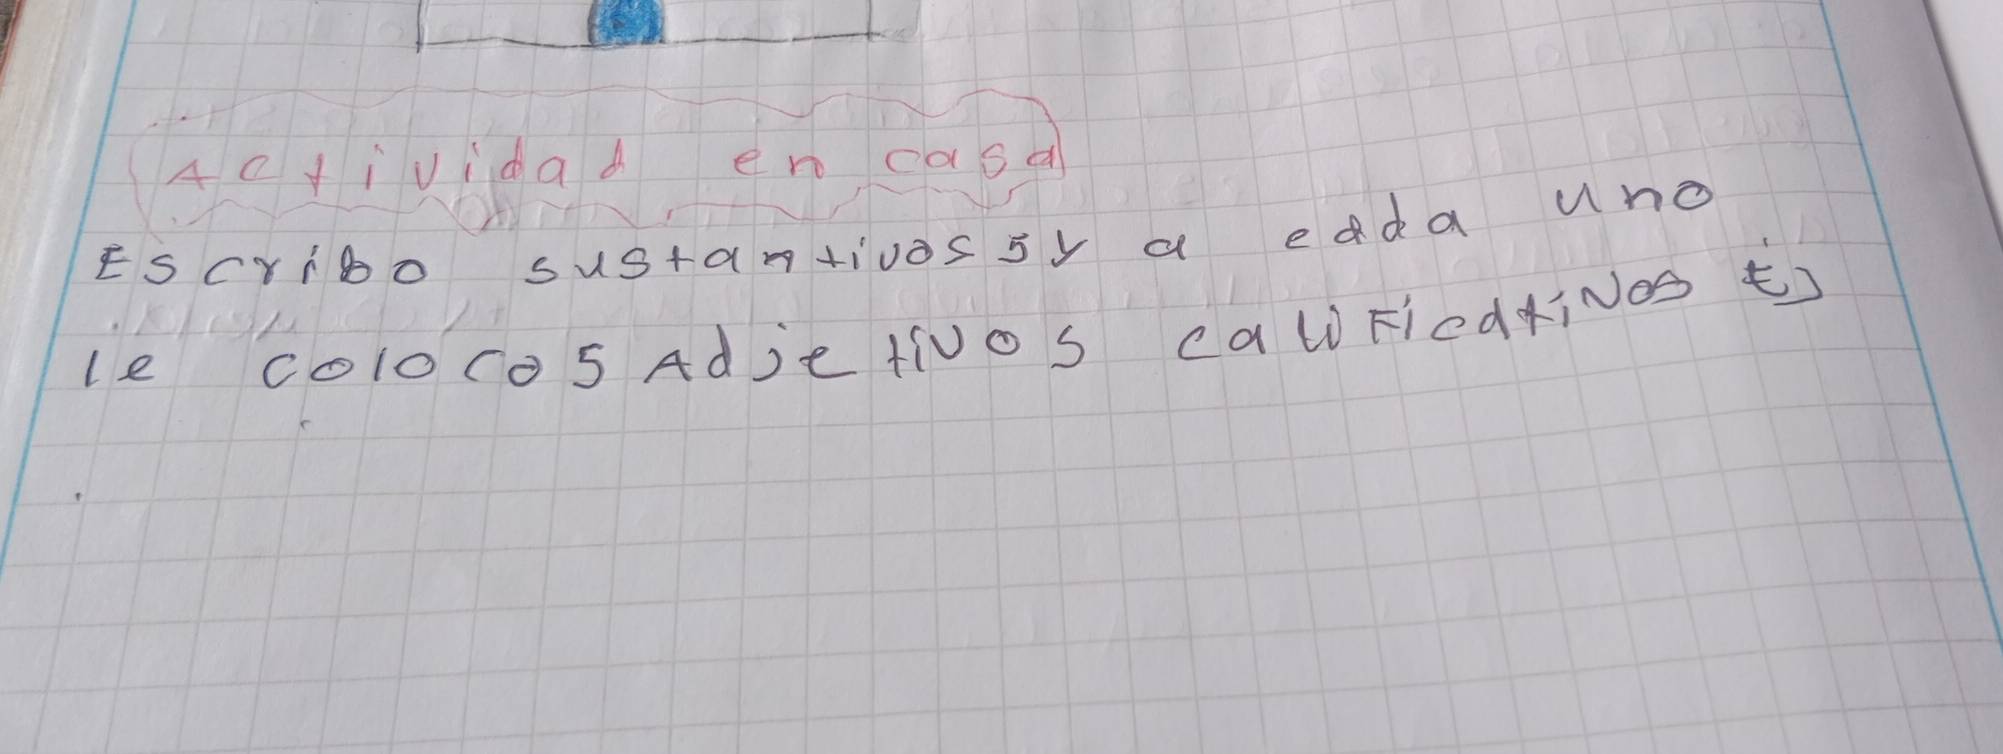 Actividad en casa
Escribo sustantivos 5 y a cada uno
le coloco 5 Adjetivos calificativos Ej